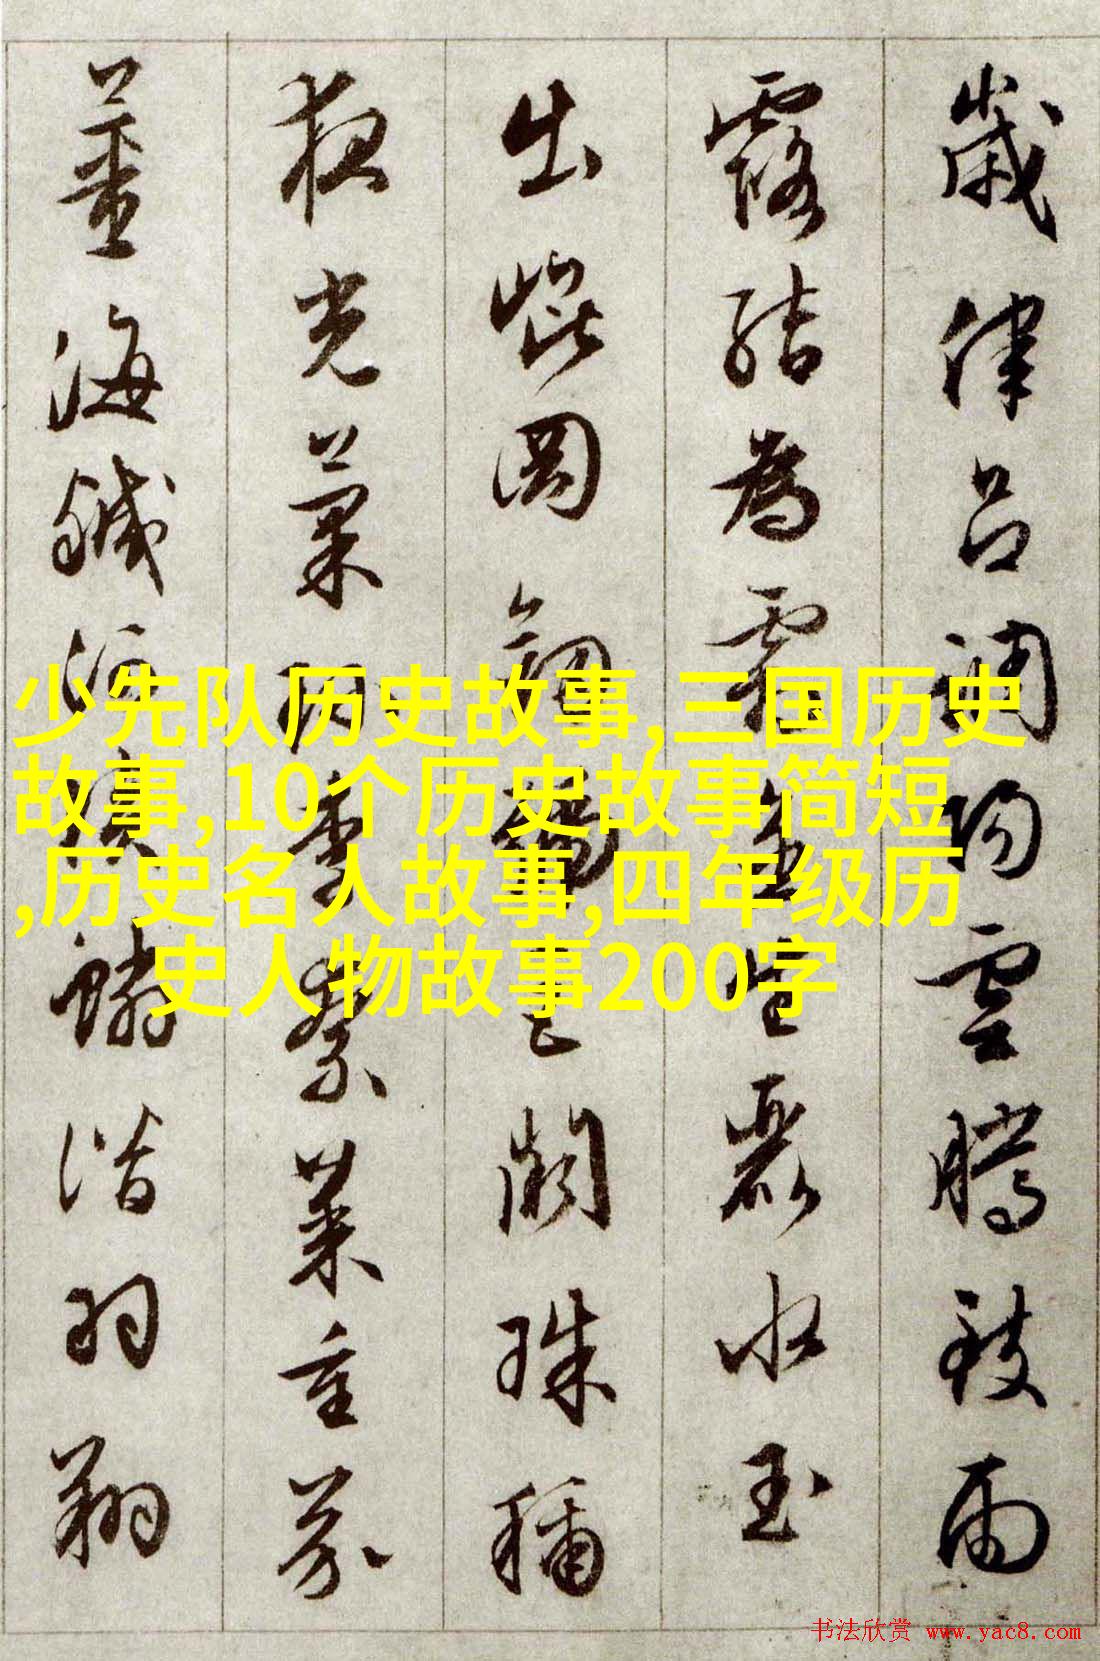 歲律呂調陽雲騰致雨
露結為霜金生麗水玉
出崐岡劍號巨闕珠稱
夜光菓珍李柰菜重芥
薑海鹹河淡鱗潛羽翔
少先队历史故事,三国历史
故事,10个历史故事简短
,历史名人故事,四年级历
史人物故事200字
书法欣赏 www.yac8.com